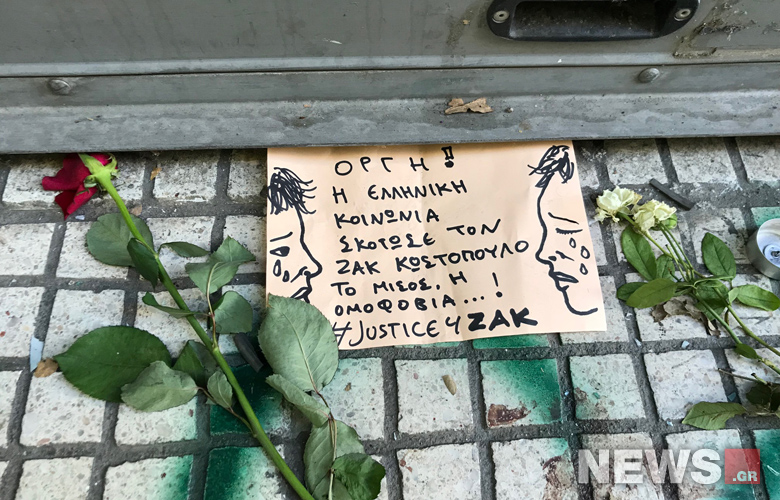 ΟΡΓΗ!
Η ΕΛΛΗΝΙΚΗ
ΚΟΙΝΩΝΙΑ
ΣΚΟΤΩΣΕ ΤΟΝ
ΖΑΚ ΚΩΣΤΟΠΟΥΛΟ
ΤΟ ΜΙΣΟΣ, Η
ΟΜΟΦΟΒΙΑ...!
#JUSTICE4ZAK
NEWS.GR